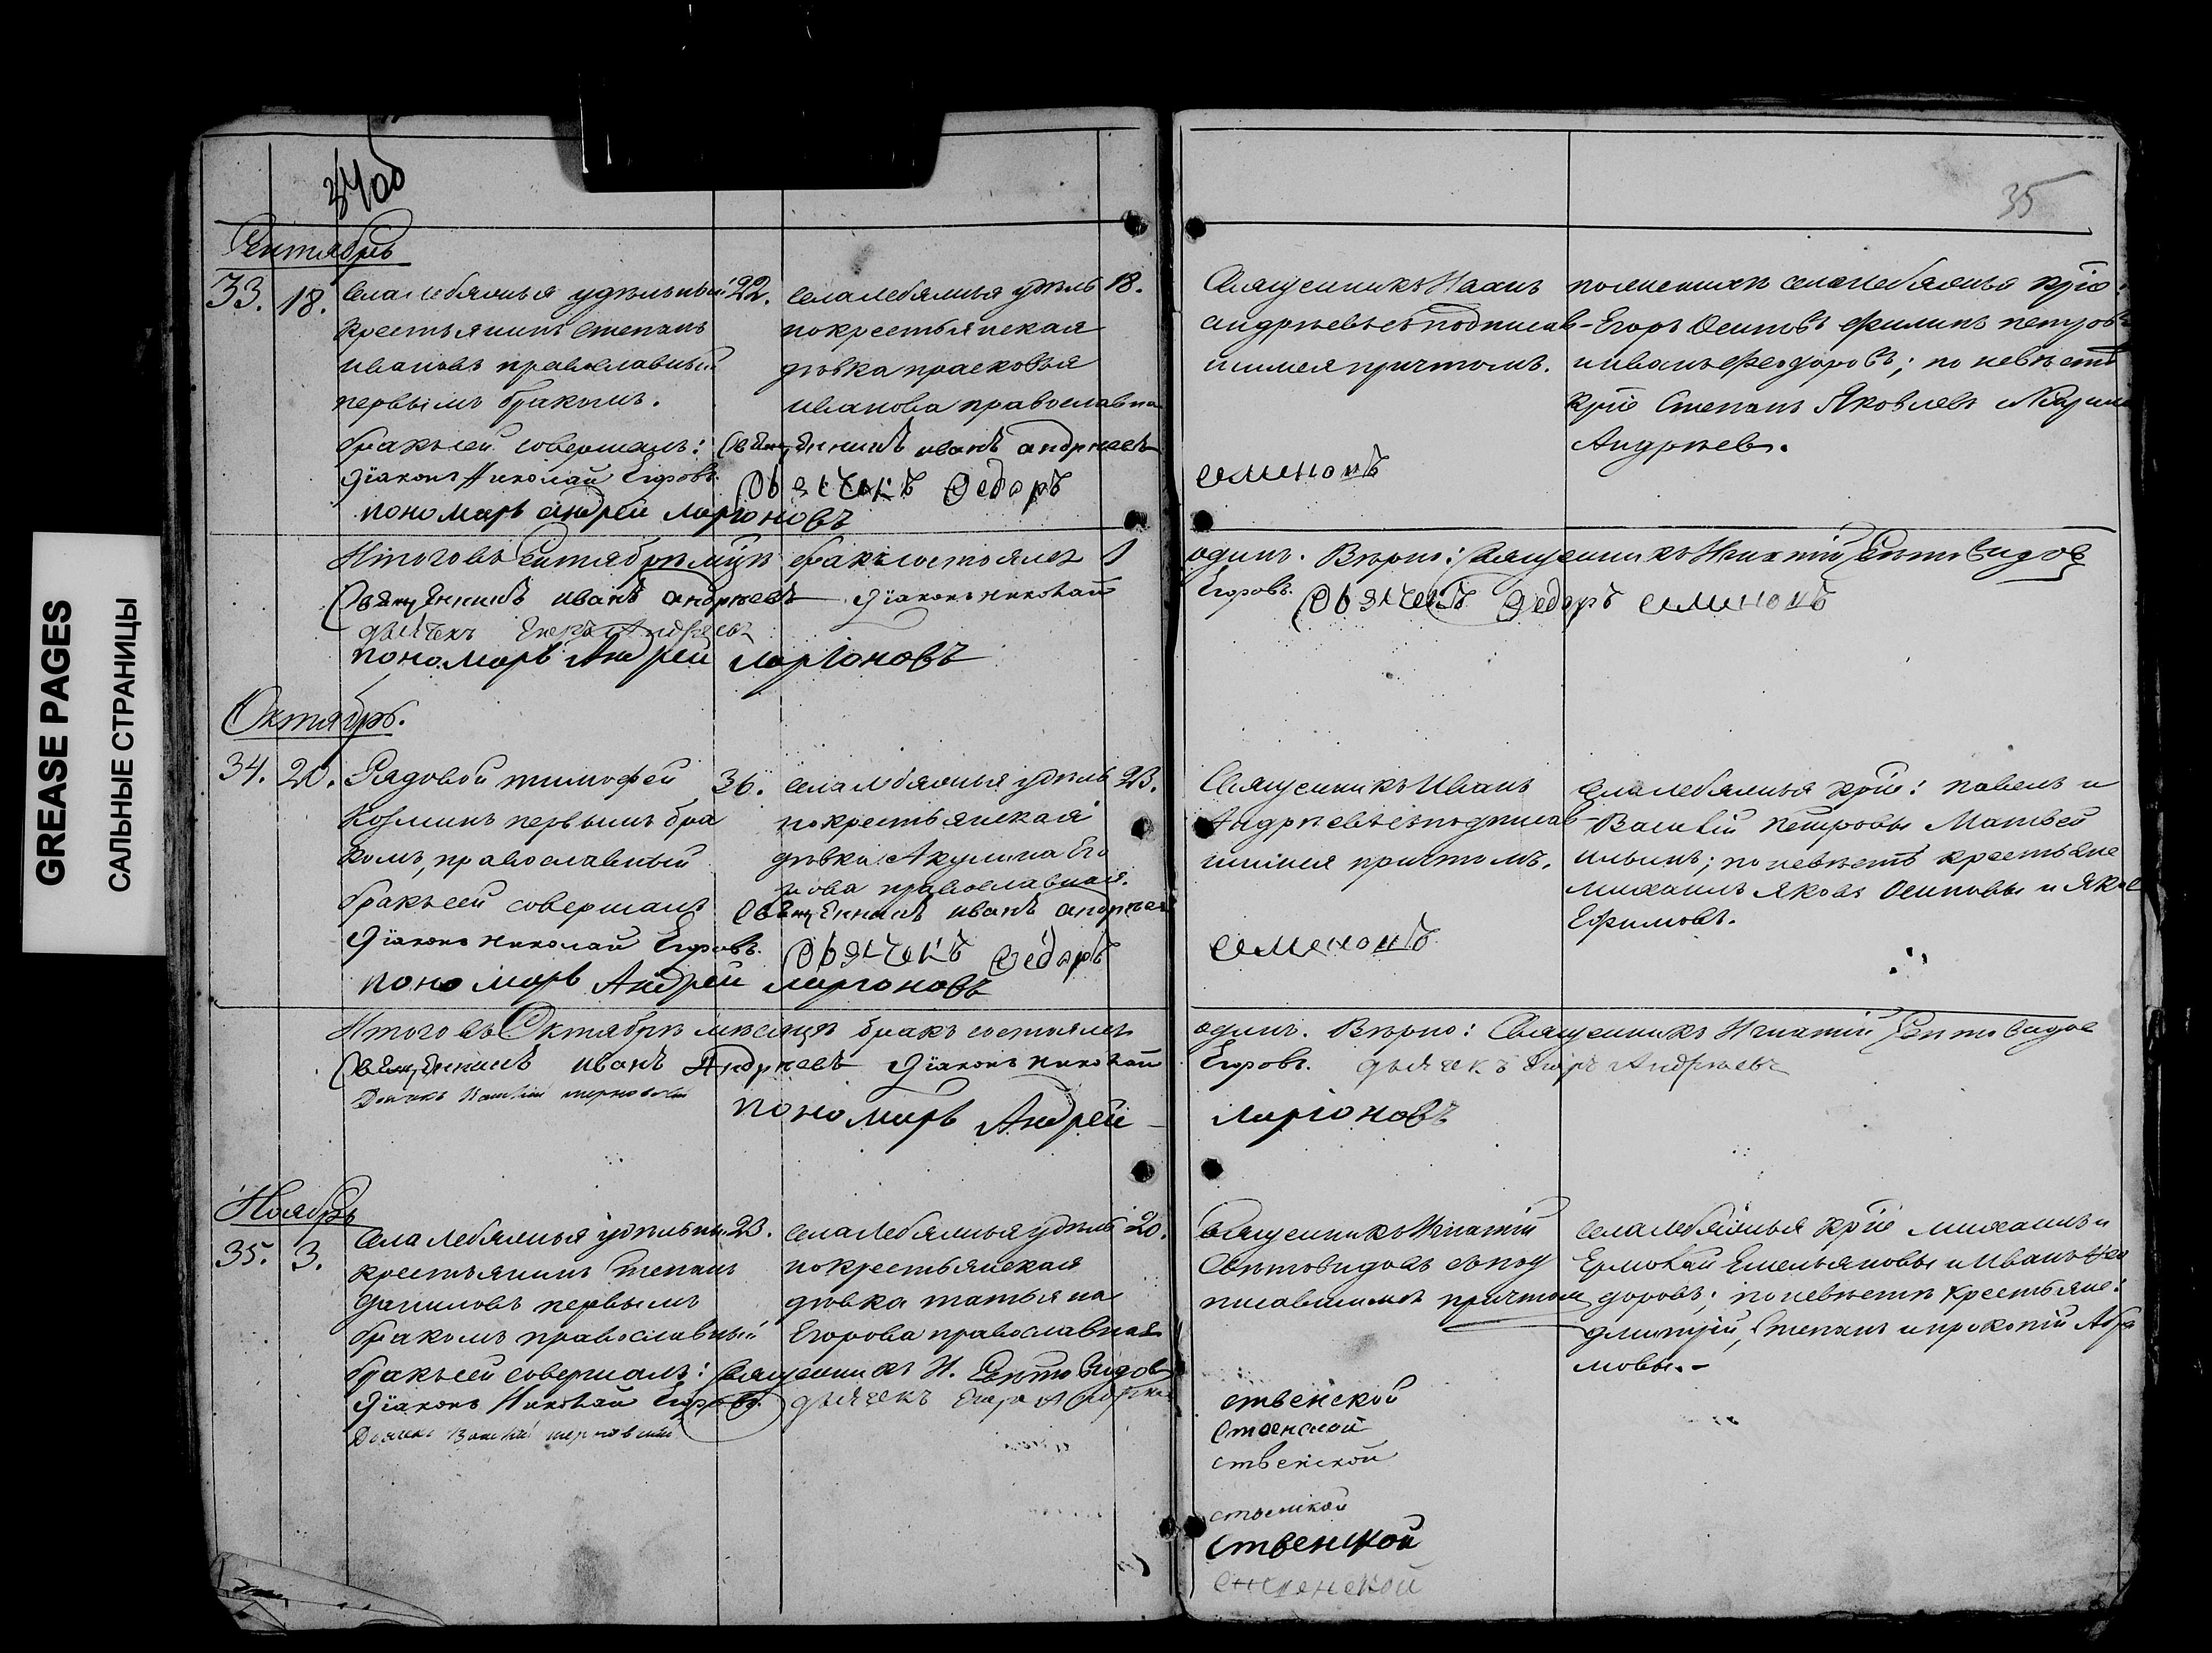 GREASE PAGES
САЛЬНЫЕ СТРАНИЦЫ
34об
35
Сентябрь
33. 18. Села Лебяжья удѣльный
крестьянинъ Степанъ
Ивановъ православный
первымъ бракомъ.
22.
села Лебяжья удѣль
но крестьянская
дѣвка Прасковья
Иванова православна
18.
Священникъ Иванъ
Андрѣевъ съ подписав-
шимся причтомъ.
села Лебяжья крѣе:
Егоръ Осиповъ Филипъ Петровъ
и Иванъ Феодоровъ; по невѣстѣ
крѣе Степанъ Яковлевъ
Андрѣев.
бракъ сей совершалъ: Священникъ Иванъ Андрѣевъ
Діаконъ Николай Егоровъ.
Дьячекъ Ѳедоръ
семеновъ
пономарь Андрей Ларіоновъ
Итого въ Сентябрѣ мѣцѣ бракъ состоялся 1
одинъ. Вѣрно: Священникъ Игнатій Свѣтовидов
Священникъ Иванъ Андрѣевъ Діаконъ Николай
Егоровъ. Дьячекъ Ѳедоръ семеновъ
дьячекъ Егоръ Андрѣевъ
пономарь Андрей Ларіоновъ
Октябрь.
34. 20. Рядовой Тимофей
Козминъ первымъ бра
комъ, православный
36.
села Лебяжья удѣль
но крестьянская
дѣвка Акулина Его
рова православная.
23.
Священникъ Иванъ
Андрѣевъ съ подписав-
шимся причтомъ.
села Лебяжья крѣе: Павелъ и
Василій Петровы Матвей
Ильинъ; по невѣстѣ крестьяне
Михаилъ Яковъ Осиповы и Яков
Ефимовъ.
бракъ сей совершалъ Священникъ Иванъ Андрѣев
Діаконъ Николай Егоровъ.
Дьячекъ Ѳедоръ
семеновъ
пономарь Андрей Ларіоновъ
Итого въ Октябрѣ мѣсяцѣ бракъ состоялся
одинъ. Вѣрно: Священникъ Игнатій Свѣтовидов
Священникъ Иванъ Андрѣевъ Діаконъ Николай
Егоровъ. дьячекъ Егоръ Андрѣевъ
пономарь Андрей
Ларіоновъ
Ноябрь
35. 3. Села Лебяжья удѣльны
крестьянинъ Степанъ
Даниловъ первымъ
бракомъ православный
23.
села Лебяжья удѣль
но крестьянская
дѣвка Татьяна
Егорова православная
20.
Священникъ Игнатій
Свѣтовидовъ съ под
писавшимся причтом
села Лебяжья крѣе Михаилъ и
Ермолай Емельяновы и Иванъ Ѳео
доровъ; по невѣстѣ крестьяне:
Дмитрій, Степанъ и Прокопій Абра
мовы.-
бракъ сей совершалъ: Священникъ И. Свѣтовидов
Діаконъ Николай Егоровъ. дьячекъ Егоръ
ственской
ственской
ственской
ственской
ственской